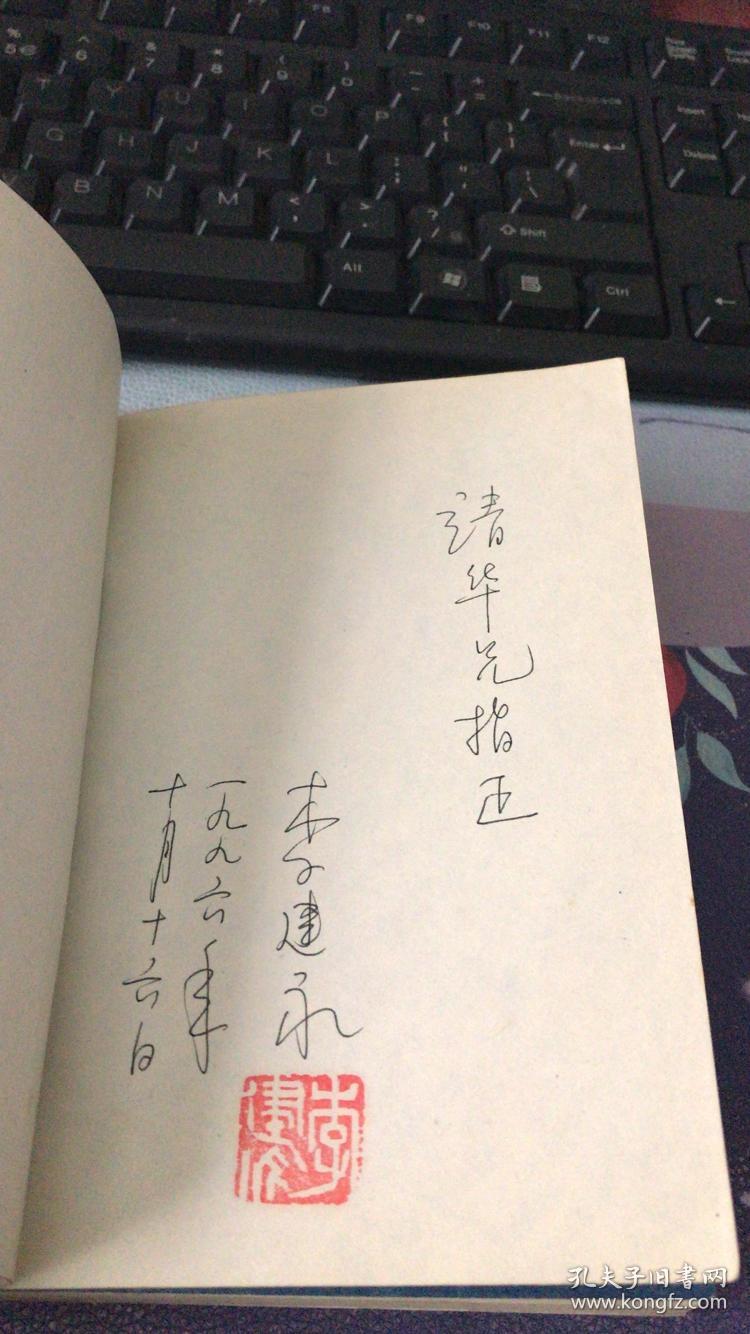 靖华兄指正
李建永
一九九六年
十月十六日
李建永
F7
F8
F9
F10
F11
F12
Backspace
T
Y
U
I
O
P
Enter
Insert
Delete
G
H
J
K
L
V
B
N
M
Shift
Alt
Ctrl
孔夫子旧书网
www.kongfz.com